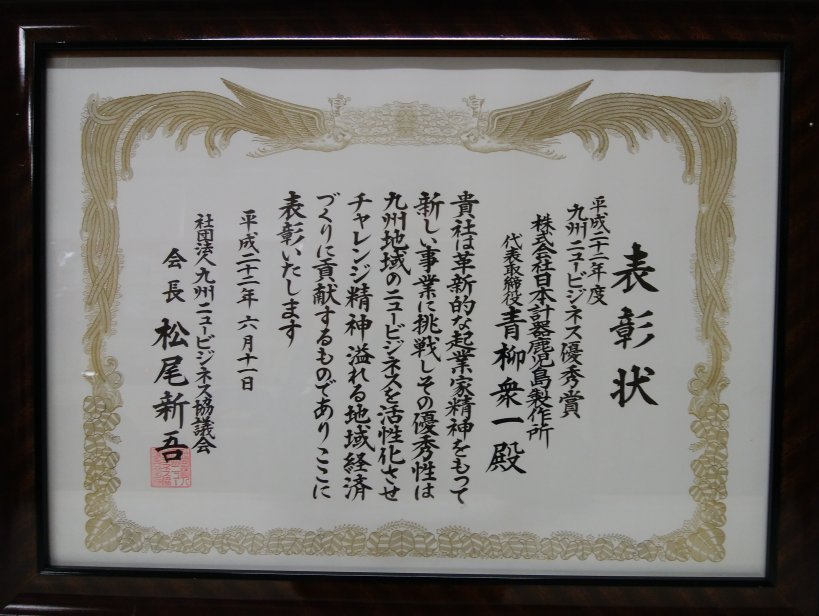 表彰状
平成二十二年度
九州ニュービジネス優秀賞
株式会社日本計器鹿児島製作所
代表取締役 青柳衆一殿
貴社は革新的な起業家精神をもって
新しい事業に挑戦しその優秀性は
九州地域のニュービジネスを活性化させ
チャレンジ精神溢れる地域経済
づくりに貢献するものでありここに
表彰いたします
平成二十二年六月十一日
社団法人九州ニュービジネス協議会
会長 松尾新吾